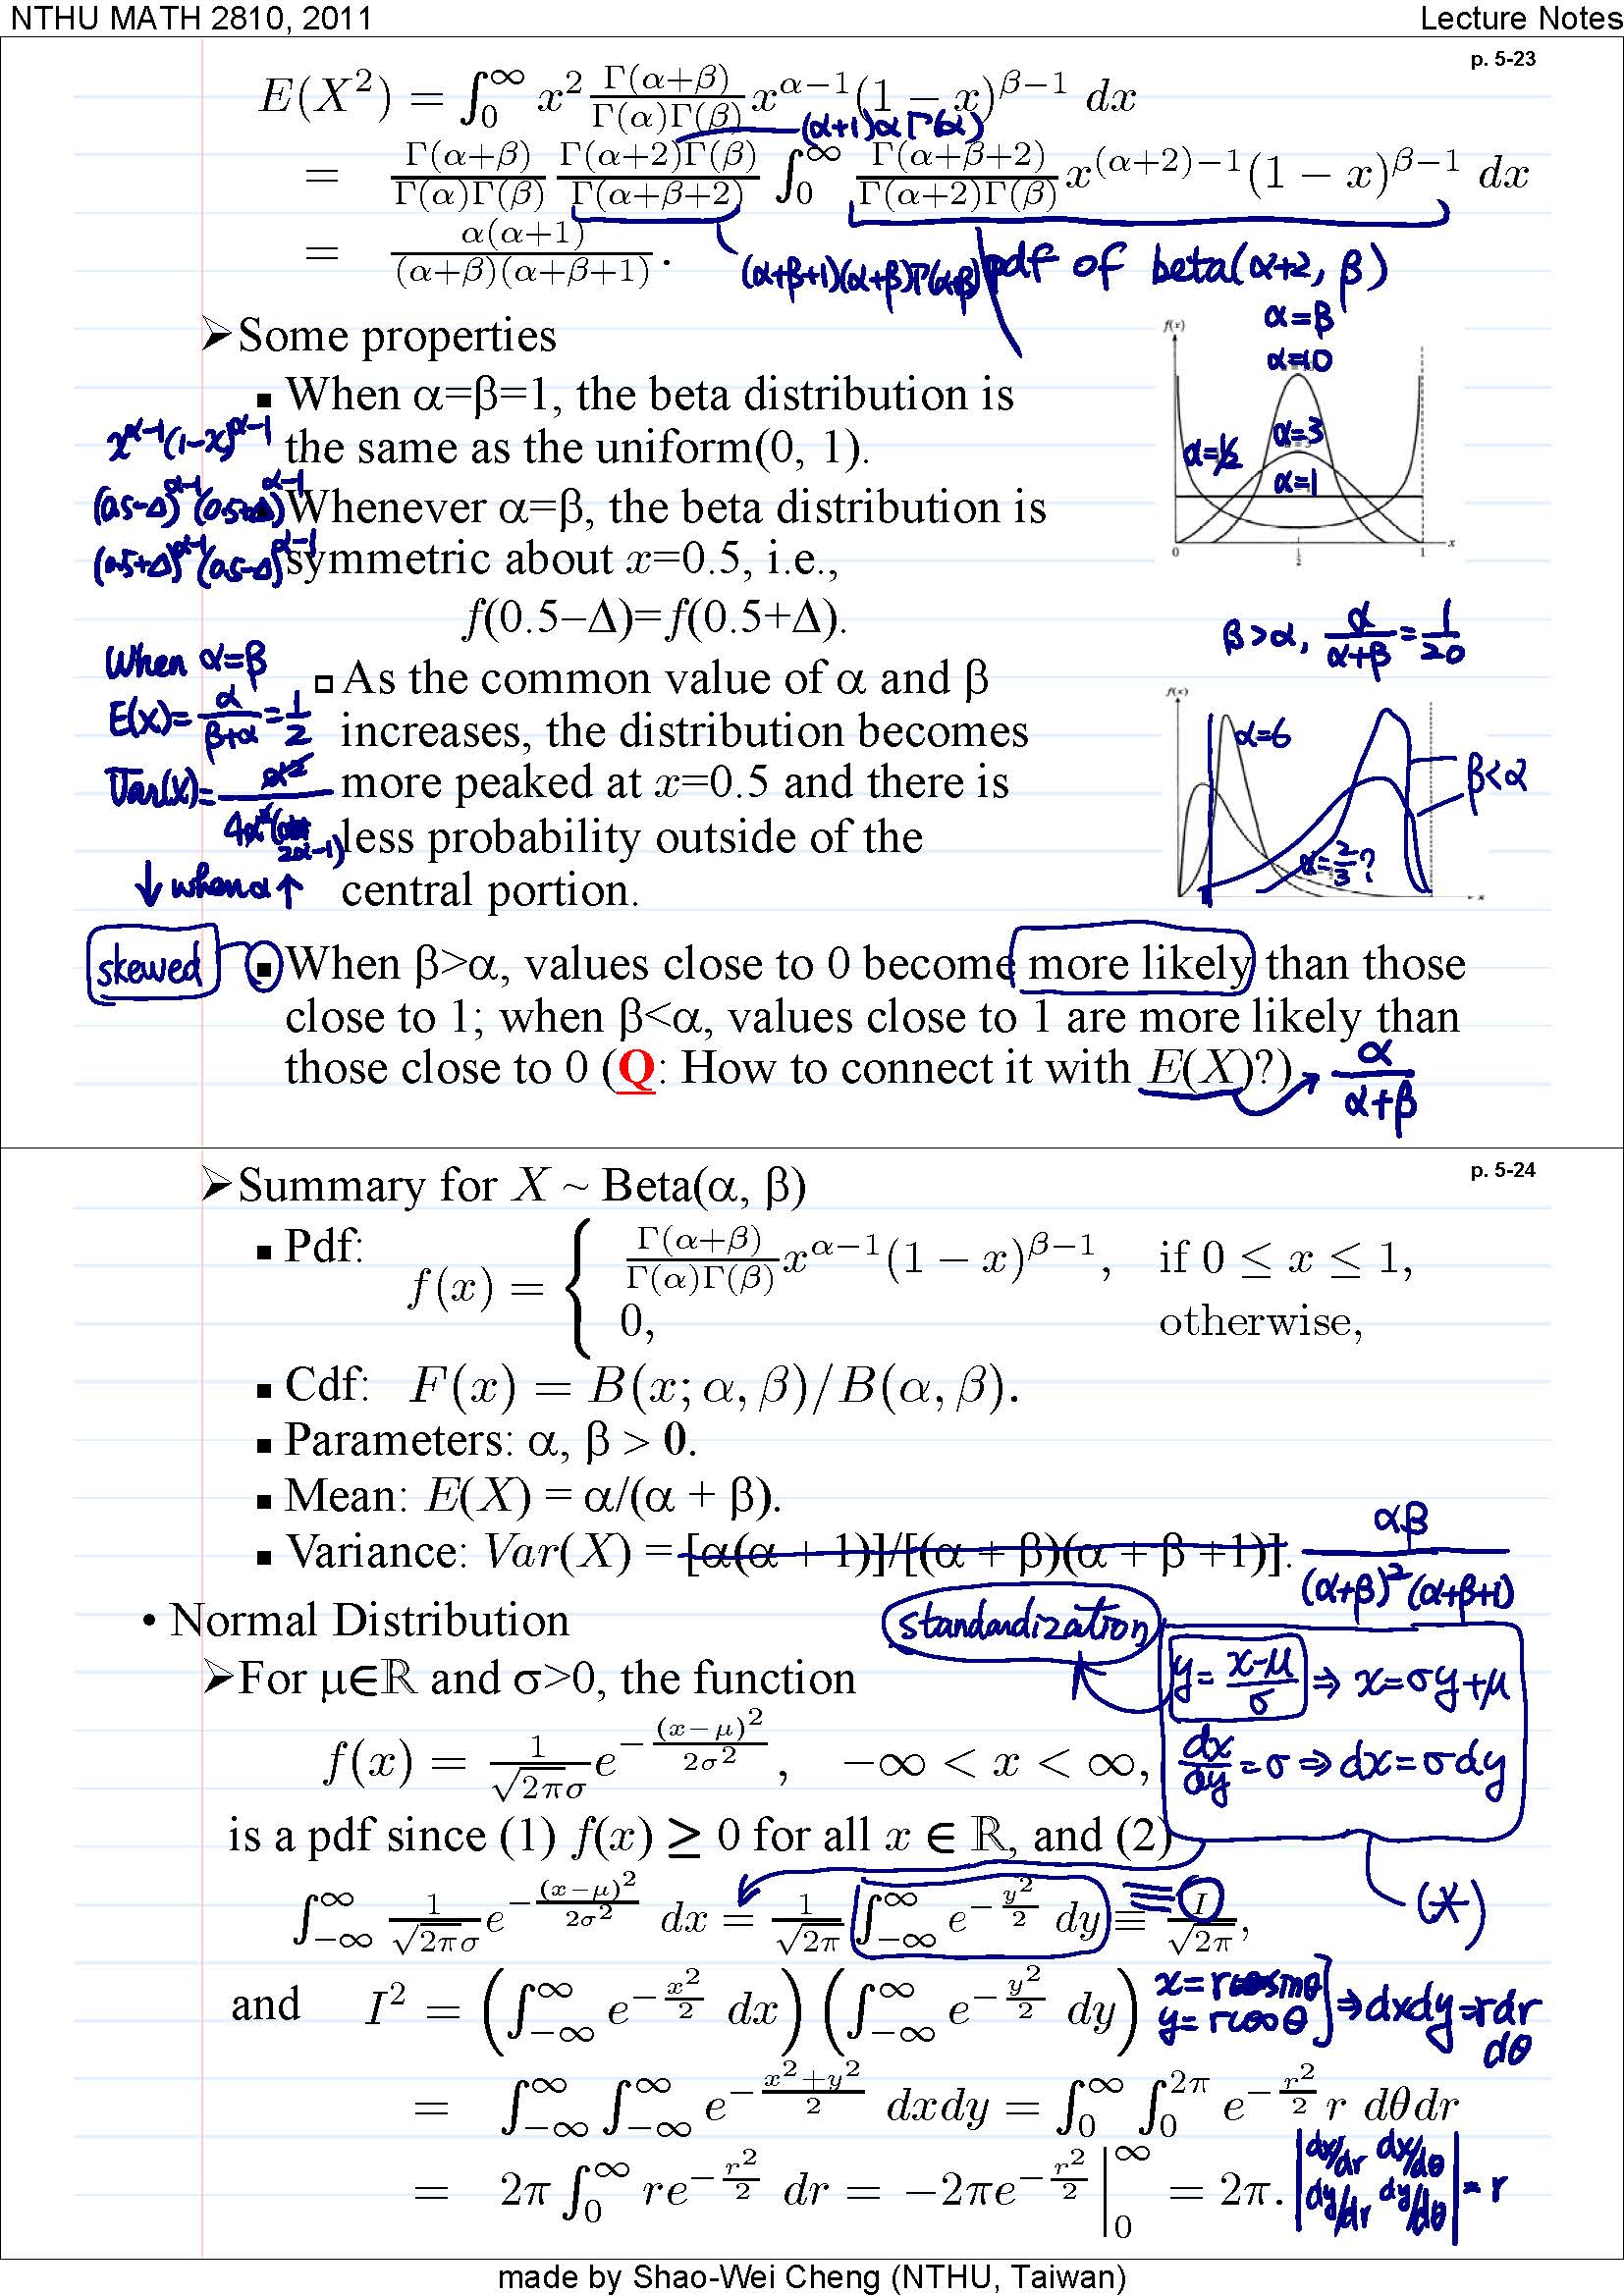 NTHU MATH 2810, 2011
Lecture Notes
p. 5-23
E(X²) = ∫₀^∞ x² Γ(α+β)/(Γ(α)Γ(β)) x^{α−1}(1 − x)^{β−1} dx
(α+1)αΓ(α)
= Γ(α+β)/(Γ(α)Γ(β)) Γ(α+2)Γ(β)/Γ(α+β+2) ∫₀^∞ Γ(α+β+2)/(Γ(α+2)Γ(β)) x^{(α+2)−1}(1 − x)^{β−1} dx
= α(α+1)/((α+β)(α+β+1)).
(α+β+1)(α+β)Γ(α+β)
pdf of beta(α+2, β)
➢Some properties
▪ When α=β=1, the beta distribution is
the same as the uniform(0, 1).
x^{α−1}(1−x)^{α−1}
▪ Whenever α=β, the beta distribution is
symmetric about x=0.5, i.e.,
f(0.5−Δ)=f(0.5+Δ).
(0.5−Δ)^{α−1}(0.5+Δ)^{α−1}
(0.5+Δ)^{α−1}(0.5−Δ)^{α−1}
α=β
α=10
α=3
α=½
α=1
f(x)
0
½
1
x
▫ As the common value of α and β
increases, the distribution becomes
more peaked at x=0.5 and there is
less probability outside of the
central portion.
When α=β
E(X)=α/(β+α)=1/2
Var(X)=α²/(4α²(2α−1))
↓ when α ↑
β>α, α/(α+β)=1/20
f(x)
α=6
β<α
α=2/3?
x
skewed
▪ When β>α, values close to 0 become more likely than those
close to 1; when β<α, values close to 1 are more likely than
those close to 0 (Q: How to connect it with E(X)?)
α/(α+β)
p. 5-24
➢Summary for X ~ Beta(α, β)
▪ Pdf: f(x) = { Γ(α+β)/(Γ(α)Γ(β)) x^{α−1}(1 − x)^{β−1}, if 0 ≤ x ≤ 1,
0, otherwise,
▪ Cdf: F(x) = B(x; α, β)/B(α, β).
▪ Parameters: α, β > 0.
▪ Mean: E(X) = α/(α + β).
▪ Variance: Var(X) = [α(α + 1)]/[(α + β)(α + β +1)]. αβ/((α+β)²(α+β+1))
• Normal Distribution
standardization
y=(x−μ)/σ ⇒ x=σy+μ
dx/dy=σ ⇒ dx=σdy
➢For μ∈ℝ and σ>0, the function
f(x) = 1/(√2π σ) e^{−(x−μ)²/(2σ²)}, −∞ < x < ∞,
is a pdf since (1) f(x) ≥ 0 for all x ∈ ℝ, and (2)
∫_{−∞}^{∞} 1/(√2π σ) e^{−(x−μ)²/(2σ²)} dx = 1/√2π ∫_{−∞}^{∞} e^{−y²/2} dy ≡ I/√2π,
≡
(*)
and I² = (∫_{−∞}^{∞} e^{−x²/2} dx)(∫_{−∞}^{∞} e^{−y²/2} dy)
x=r sinθ
y=r cosθ
⇒dxdy=rdr
dθ
= ∫_{−∞}^{∞} ∫_{−∞}^{∞} e^{−(x²+y²)/2} dxdy = ∫₀^∞ ∫₀^{2π} e^{−r²/2} r dθdr
= 2π ∫₀^∞ re^{−r²/2} dr = −2πe^{−r²/2} |₀^∞ = 2π.
|dx/dr dx/dθ
dy/dr dy/dθ| = r
made by Shao-Wei Cheng (NTHU, Taiwan)